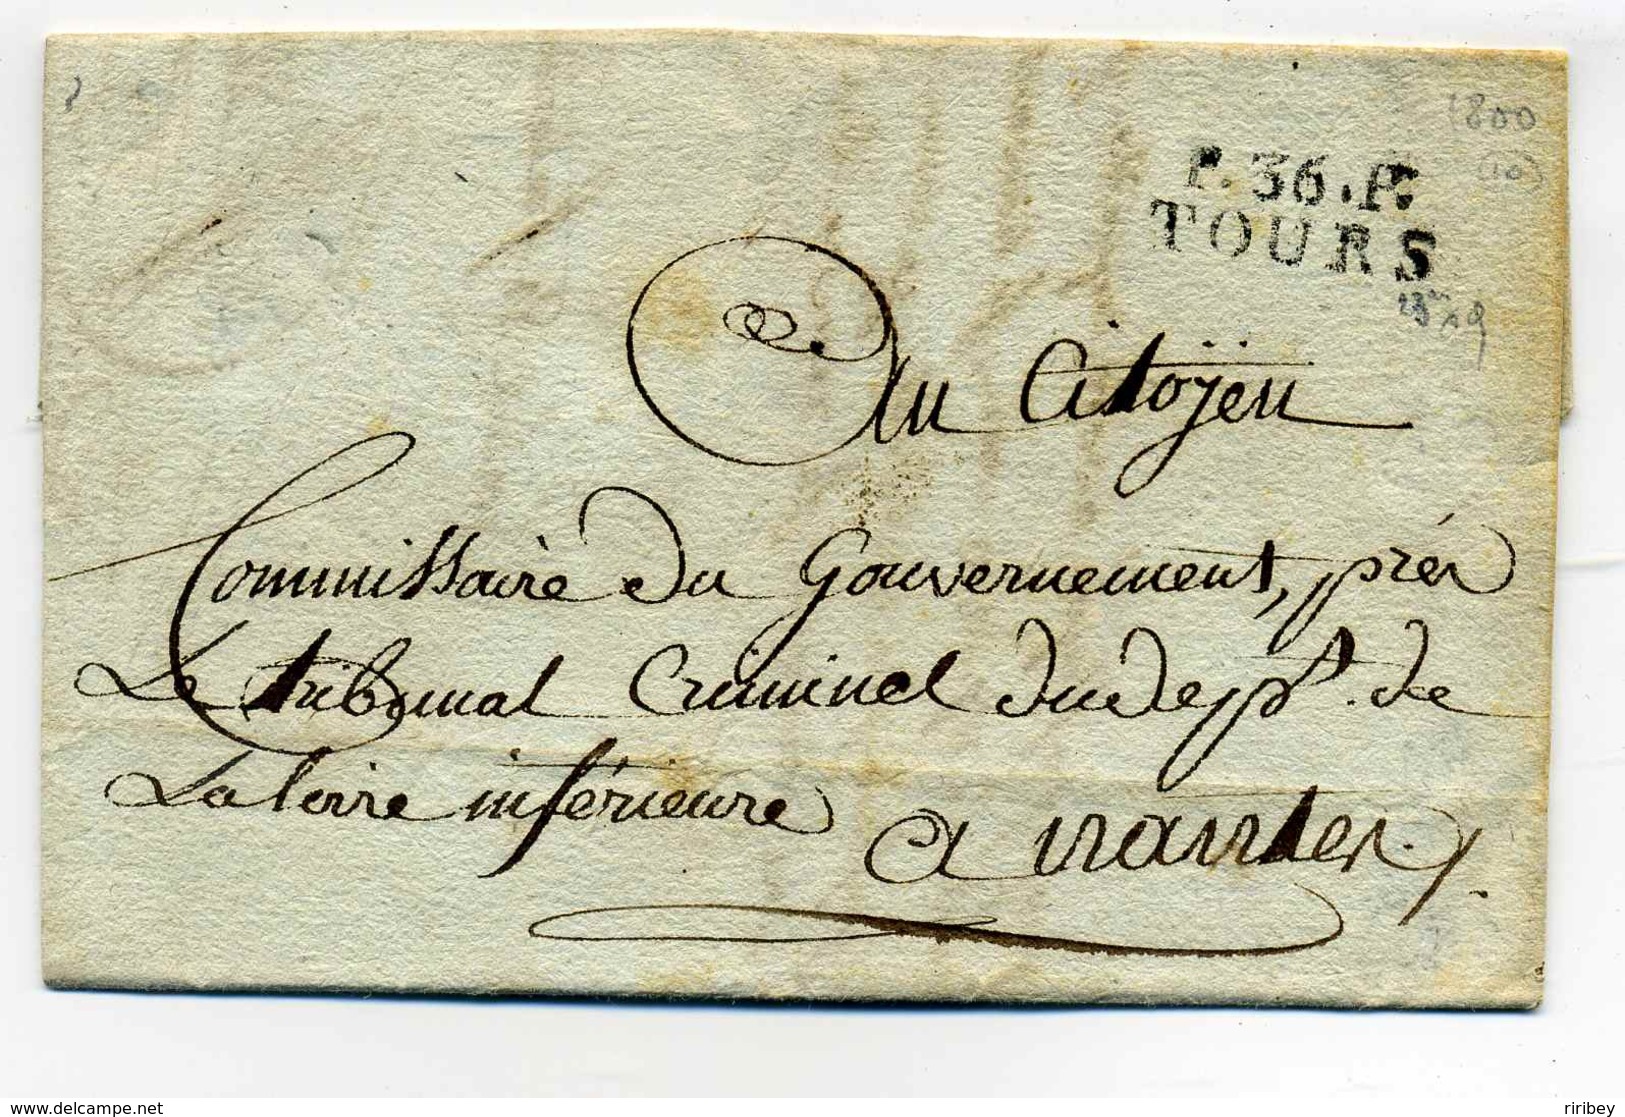 1800
(10)
P.36.P.
TOURS
Au Citoÿen
Commissaire du Gouvernement, près
Le tribunal Criminel du Dept. de
La loire inférieure
a nantes.
delcampe.net
riribey